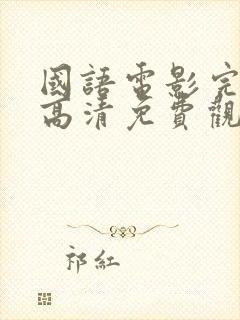 國語電影完
高清免費觀
祁紅